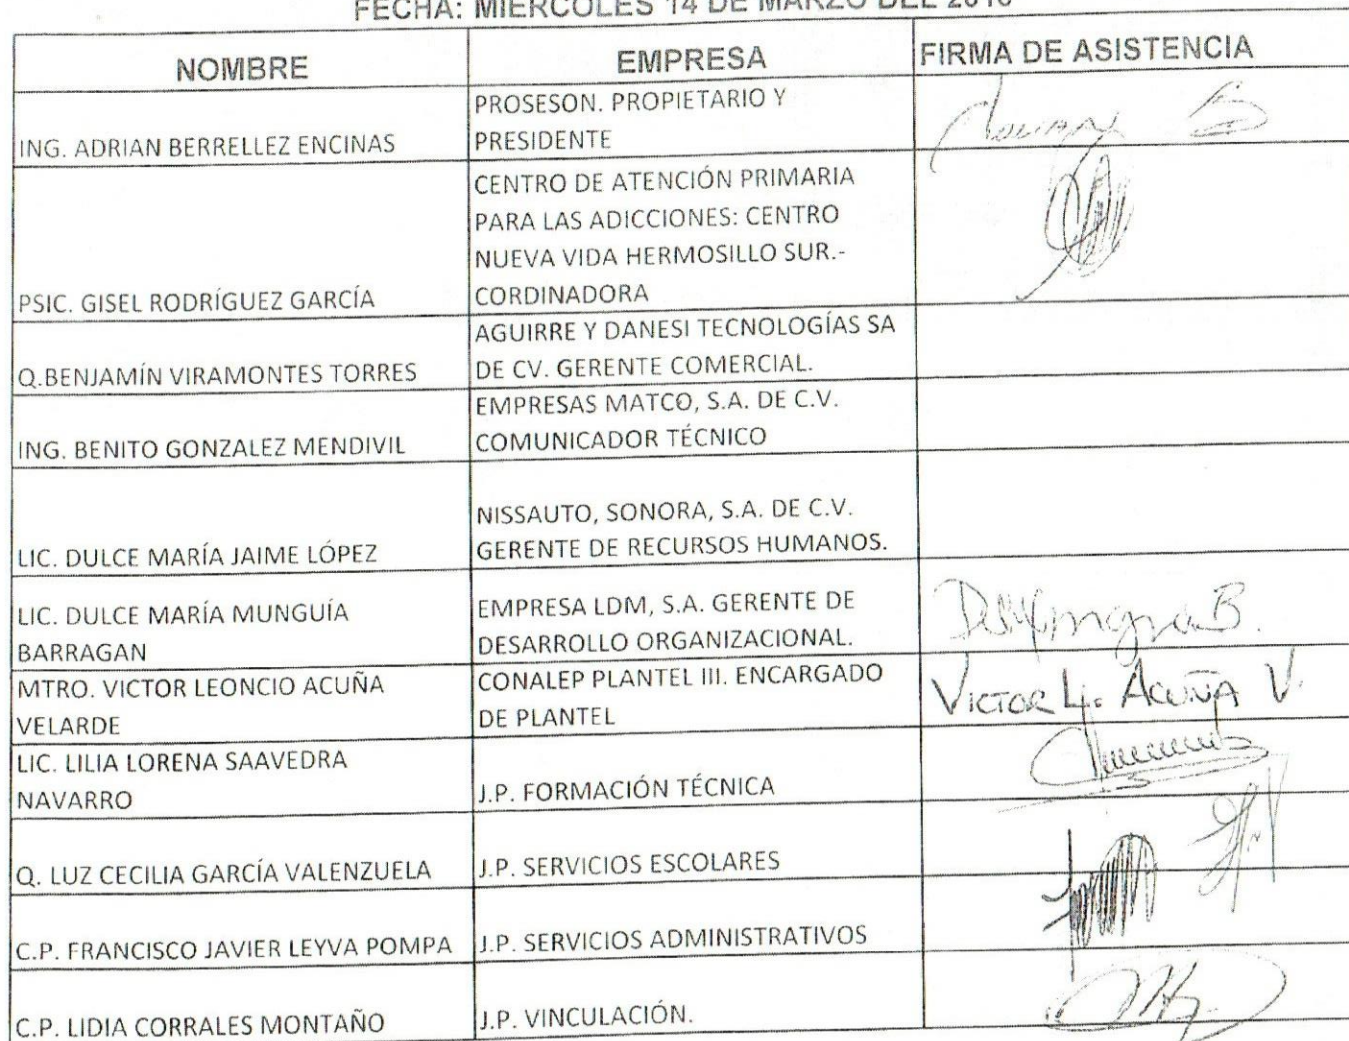 FECHA: MIERCOLES 14 DE MARZO DEL
NOMBRE
EMPRESA
FIRMA DE ASISTENCIA
ING. ADRIAN BERRELLEZ ENCINAS
PROSESON. PROPIETARIO Y
PRESIDENTE
PSIC. GISEL RODRÍGUEZ GARCÍA
CENTRO DE ATENCIÓN PRIMARIA
PARA LAS ADICCIONES: CENTRO
NUEVA VIDA HERMOSILLO SUR.-
CORDINADORA
Q.BENJAMÍN VIRAMONTES TORRES
AGUIRRE Y DANESI TECNOLOGÍAS SA
DE CV. GERENTE COMERCIAL.
ING. BENITO GONZALEZ MENDIVIL
EMPRESAS MATCO, S.A. DE C.V.
COMUNICADOR TÉCNICO
LIC. DULCE MARÍA JAIME LÓPEZ
NISSAUTO, SONORA, S.A. DE C.V.
GERENTE DE RECURSOS HUMANOS.
LIC. DULCE MARÍA MUNGUÍA
BARRAGAN
EMPRESA LDM, S.A. GERENTE DE
DESARROLLO ORGANIZACIONAL.
MTRO. VICTOR LEONCIO ACUÑA
VELARDE
CONALEP PLANTEL III. ENCARGADO
DE PLANTEL
VICTOR L. ACUÑA V.
LIC. LILIA LORENA SAAVEDRA
NAVARRO
J.P. FORMACIÓN TÉCNICA
Q. LUZ CECILIA GARCÍA VALENZUELA
J.P. SERVICIOS ESCOLARES
C.P. FRANCISCO JAVIER LEYVA POMPA
J.P. SERVICIOS ADMINISTRATIVOS
C.P. LIDIA CORRALES MONTAÑO
J.P. VINCULACIÓN.